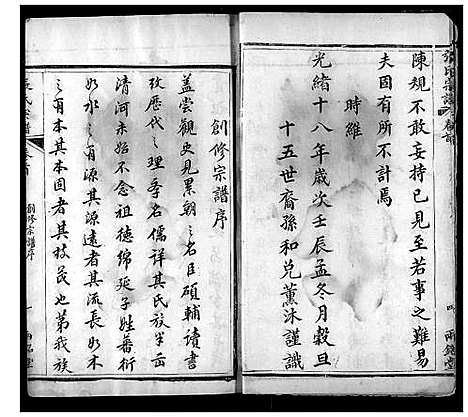 陳規不敢妄持已見至若事之難易
夫固有所不計焉
時維
光緒十八年歲次壬辰孟冬月穀旦
十五世裔孫和兌薰沐謹識
創修宗譜序
蓋嘗觀史見累朝之名臣碩輔讀書
攷歷代之理學名儒詳其氏族半出
清河未始不念祖德綿延子姓蕃衍
如水之有源其源遠者其流長如木
之有本其本固者其枝茂也第我族
創修宗譜序
一
四